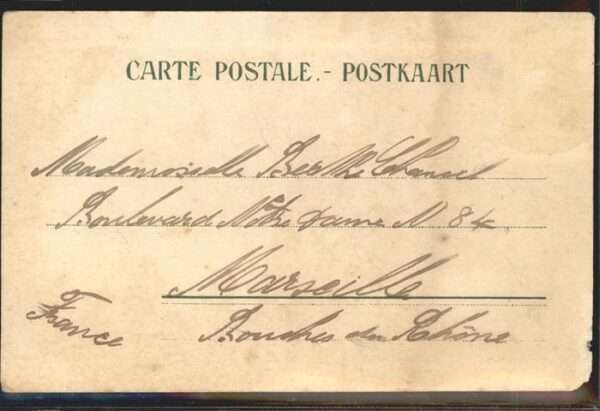 CARTE POSTALE.- POSTKAART
Mademoiselle Berthe Chancel
Boulevard Nôtre Dame N 84
Marseille
France
Bouches du Rhône